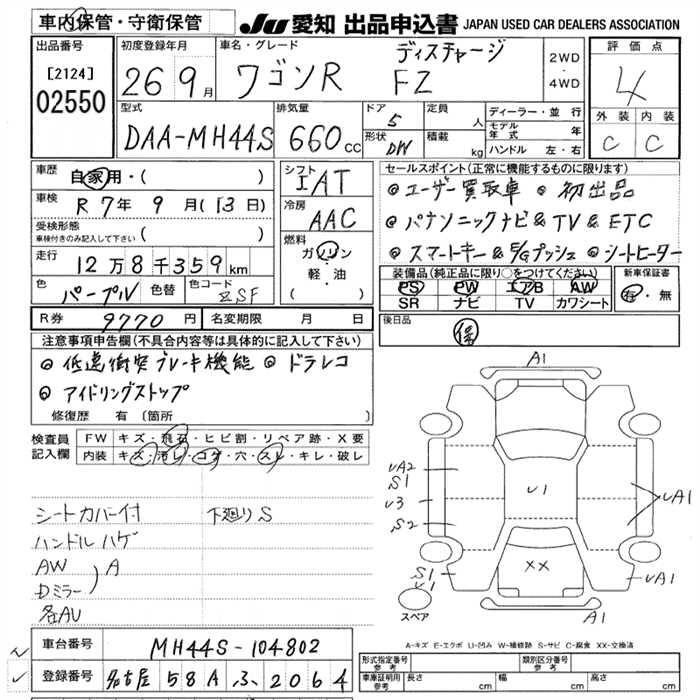 車内保管・守衛保管 JU 愛知 出品申込書 JAPAN USED CAR DEALERS ASSOCIATION
出品番号 [2124] 02550
初度登録年月 26 9月
車名・グレード ワゴンR ディスチャージ FZ
2WD・4WD
評価点 4
外装 内装
C C
型式 DAA-MH44S
排気量 660cc
ドア 5 形状 DW
定員 人 積載 kg
ディーラー・並行
モデル年式 年
ハンドル 左・右
車歴 自家用・( )
車検 R 7年 9月(13日)
受検形態 車検付きのみ記入して下さい ( )
走行 12万8千359km
色 パープル 色替 色コード ZSF
シフト IAT
冷房 AAC
燃料 ガソリン・軽油 ( )
セールスポイント(正常に機能するものに限ります)
◎ユーザー買取車 ◎初出品
◎パナソニックナビ&TV&ETC
◎スマートキー&E/Gプッシュ ◎シートヒーター
装備品(純正品に限り○をつけてください)
PS PW エアB AW
SR ナビ TV カワシート
新車保証書 有・無
後日品 保
R券 9770円 名変期限 月 日
注意事項申告欄(不具合内容等は具体的に記入して下さい)
◎低速衝突ブレーキ機能 ◎ドラレコ
◎アイドリングストップ
修復歴 有 (箇所 )
検査員記入欄
FW キズ・飛石・ヒビ割・リペア跡・X要
内装 キズ・汚レ・コゲ・穴・スレ・キレ・破レ
シートカバー付 下廻りS
ハンドルハゲ
AW
Dミラー ) A
各AU
A1
UA2
S1
U3
S2
U1
UA1
XX
S1
U1
UA1
A1
スペア
A-キズ E-エクボ U-凹み W-補修跡 S-サビ C-腐食 XX-交換済
車台番号 MH44S-104802
登録番号 名古屋 58A ふ 2064
形式指定番号 参考 類別区分番号 参考
車庫証明用 参考 長さ cm 幅 cm 高さ cm